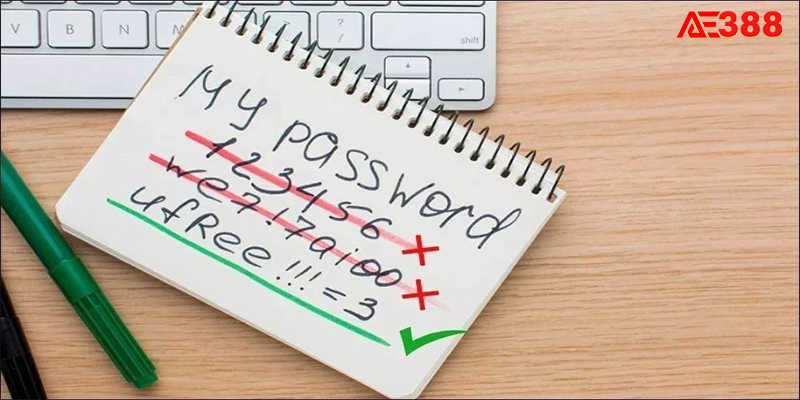 AE388
V B N ? / shift
My password
123456
we7!7aioo
ufRee!!!=3